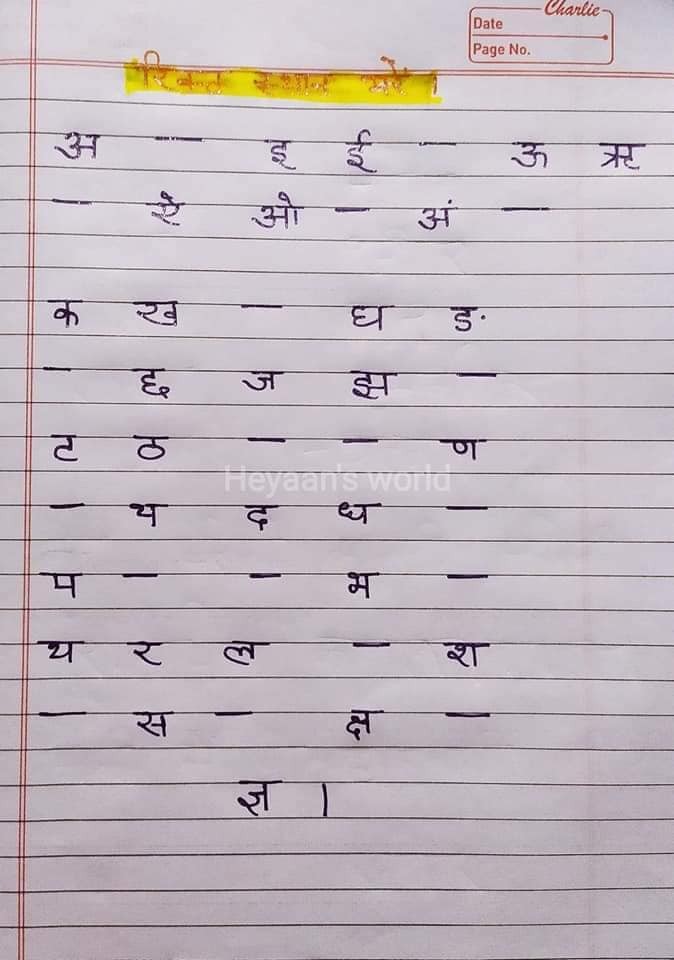 Charlie
Date
Page No.
रिक्त स्थान भरें ।
अ — इ ई — ऊ ऋ
— ऐ ओ — अं —
क ख — घ ङ
— छ ज झ —
ट ठ — — ण
Heyaan's world
— थ द ध —
प — — भ —
य र ल — श
— स — क्ष —
ज्ञ ।